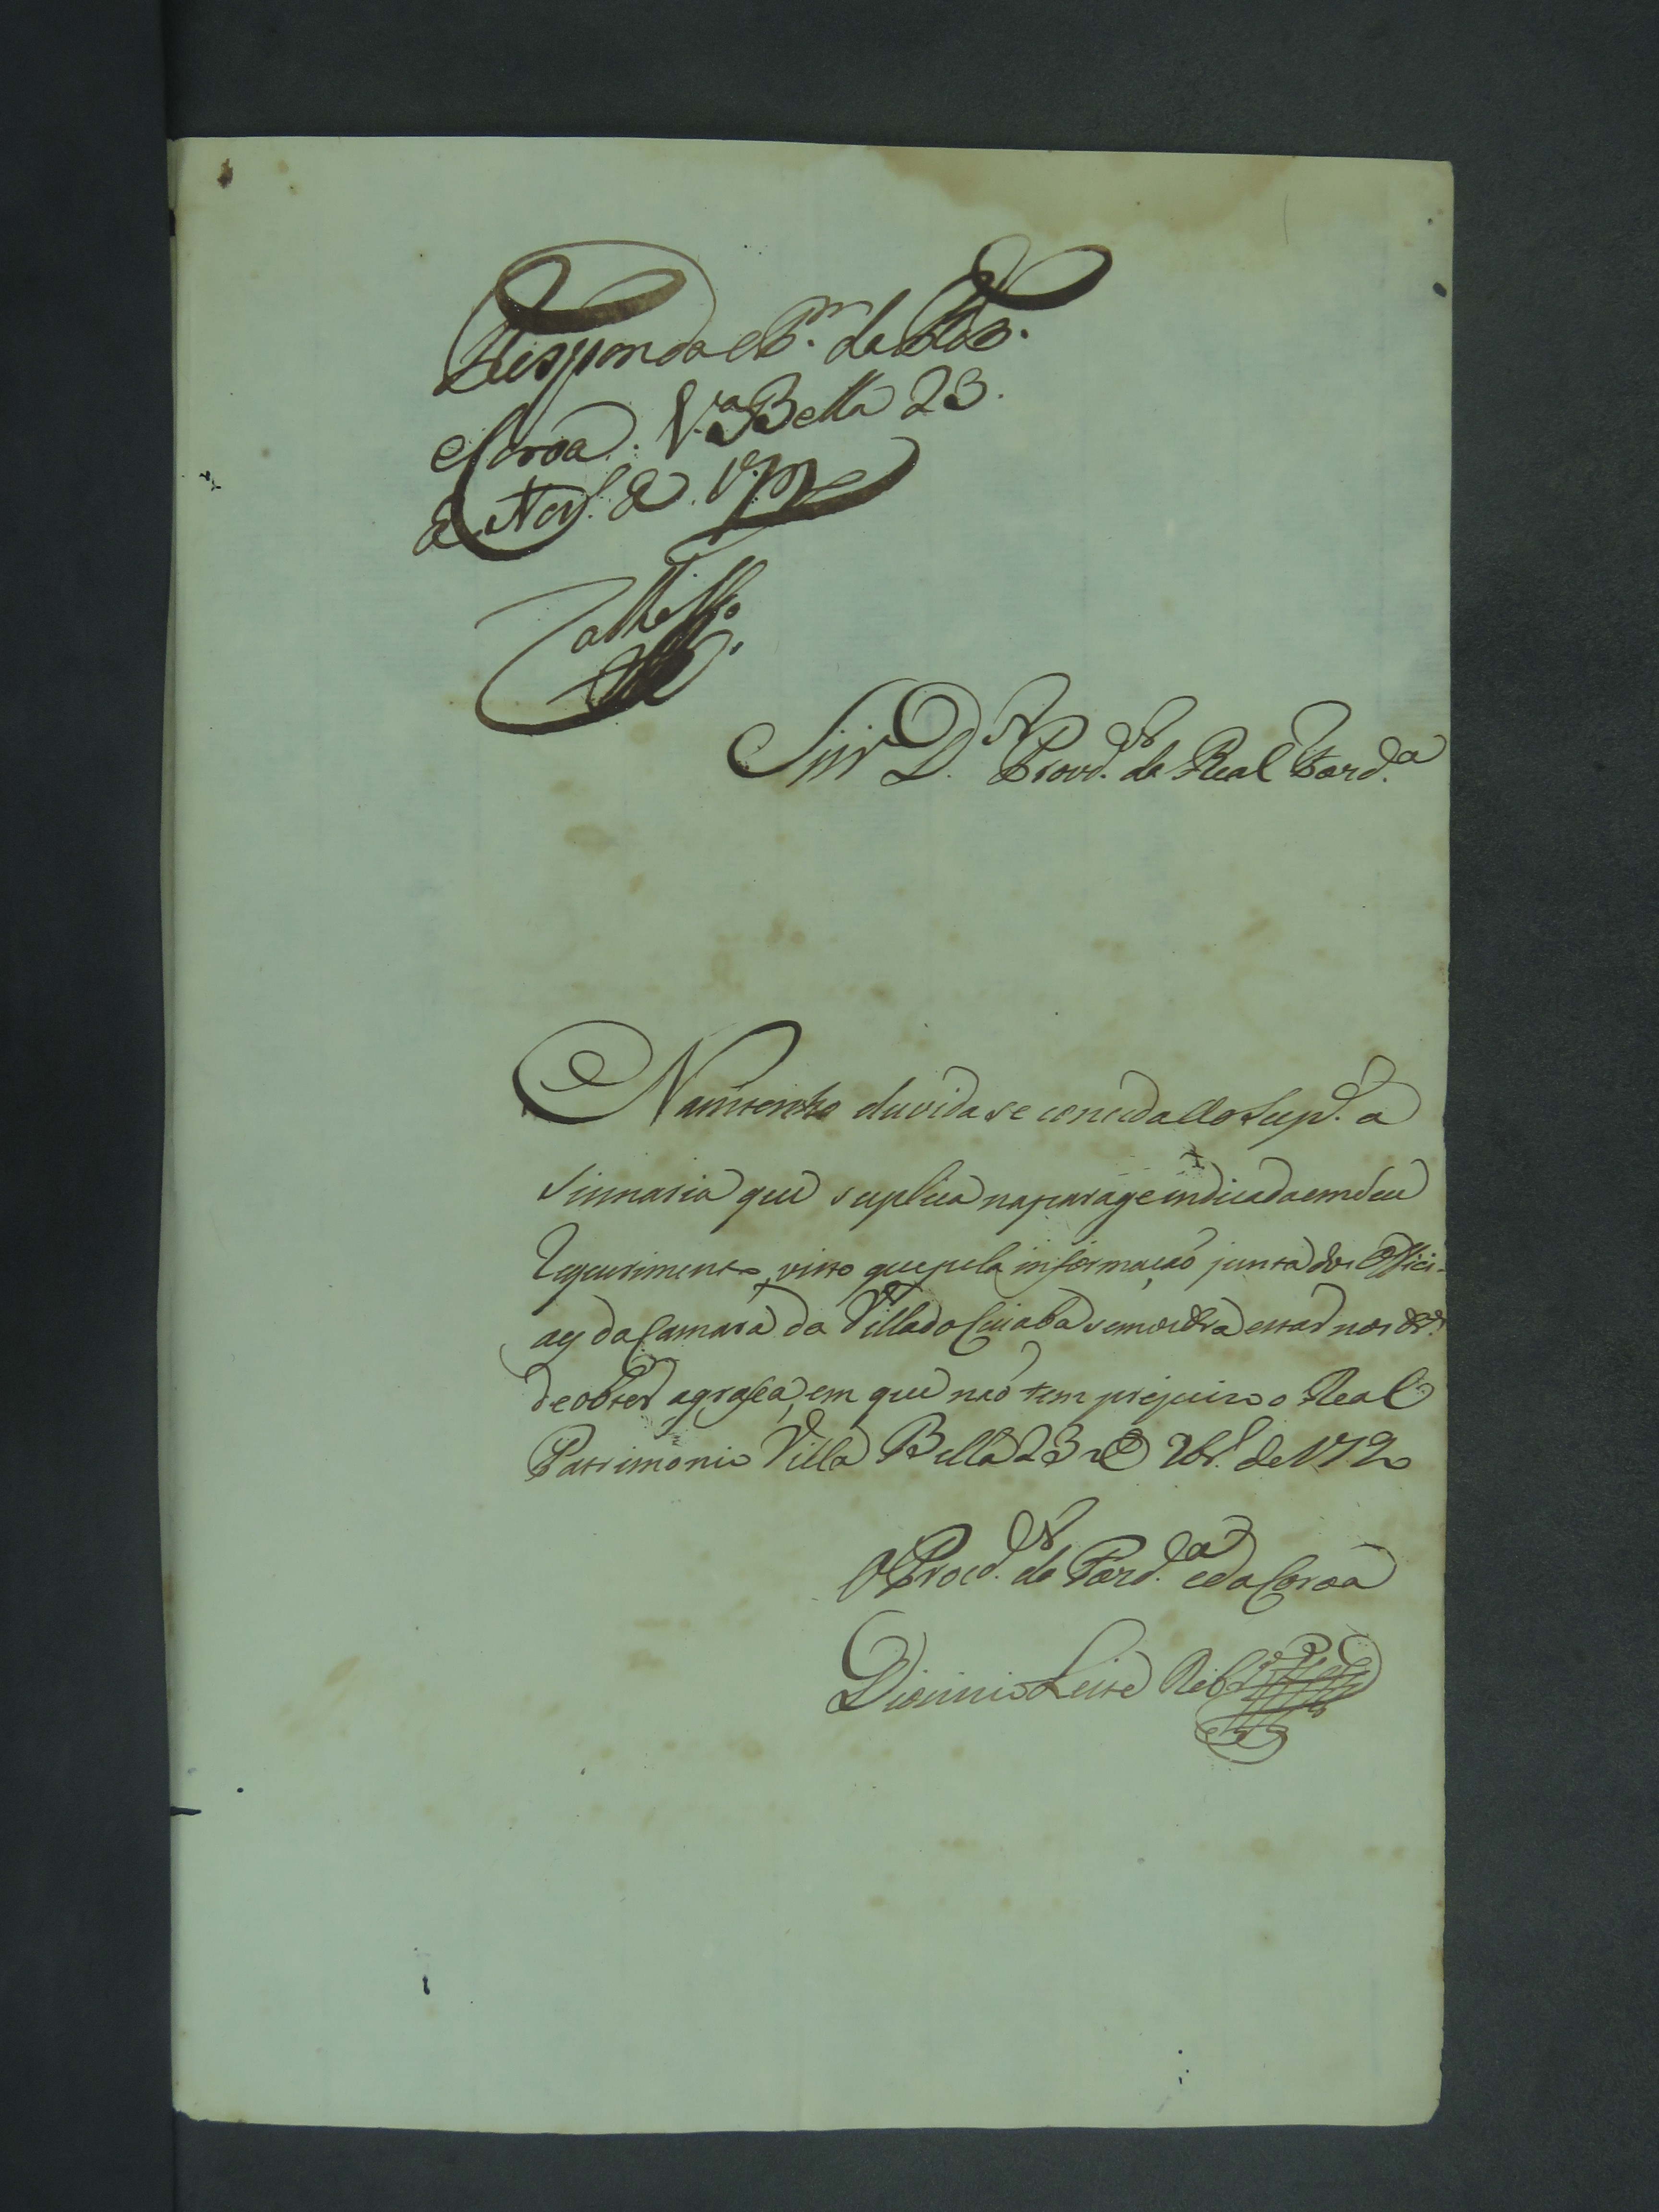 Responda o P.or da Fazd.a
e Coroa. V.a Bella 23.
de Nov.o de
Snr D.r Proved.or da Real Fazd.a
Nam tenho duvida se conceda ao Sup.e a
Sismaria que suplica na parage indicada em seu
Requerimento, visto que pela informação junta dos Offici-
aes da Camara da Villa do Cuiaba se mostra estar nos
de obter a graça, em que não tem prejuizo o Real
Patrimonio Villa Bella 23 de 9br.o de
O Procd.or da Fazd.a e da Coroa
Dionizio Leite Rib.o